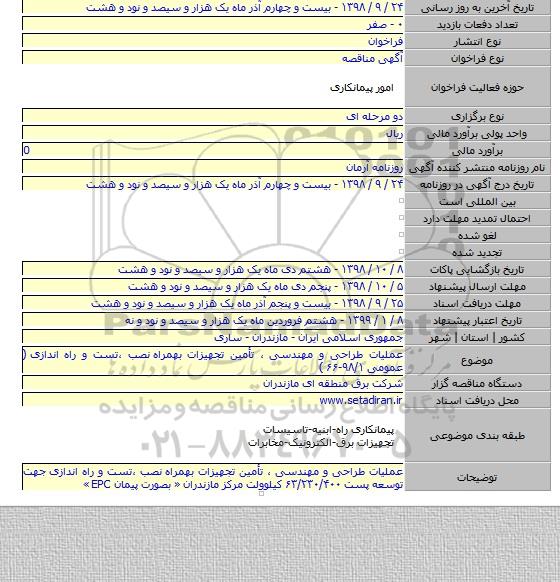 تاریخ آخرین به روز رسانی ۲۴ / ۹ / ۱۳۹۸ - بیست و چهارم آذر ماه یک هزار و سیصد و نود و هشت
تعداد دفعات بازدید ۰ - صفر
نوع انتشار فراخوان
نوع فراخوان آگهی مناقصه
حوزه فعالیت فراخوان امور پیمانکاری
نوع برگزاری دو مرحله ای
واحد پولی برآورد مالی ریال
برآورد مالی 0
نام روزنامه منتشر کننده آگهی روزنامه آرمان
تاریخ درج آگهی در روزنامه ۲۴ / ۹ / ۱۳۹۸ - بیست و چهارم آذر ماه یک هزار و سیصد و نود و هشت
بین المللی است
احتمال تمدید مهلت دارد
لغو شده
تجدید شده
تاریخ بازگشایی پاکات ۸ / ۱۰ / ۱۳۹۸ - هشتم دی ماه یک هزار و سیصد و نود و هشت
مهلت ارسال پیشنهاد ۵ / ۱۰ / ۱۳۹۸ - پنجم دی ماه یک هزار و سیصد و نود و هشت
مهلت دریافت اسناد ۲۵ / ۹ / ۱۳۹۸ - بیست و پنجم آذر ماه یک هزار و سیصد و نود و هشت
تاریخ اعتبار پیشنهاد ۸ / ۱ / ۱۳۹۹ - هشتم فروردین ماه یک هزار و سیصد و نود و نه
کشور | استان | شهر جمهوری اسلامی ایران - مازندران - ساری
موضوع عملیات طراحی و مهندسی ، تأمین تجهیزات بهمراه نصب ،تست و راه اندازی (
عمومی ۹۸/۱-۶۶)
دستگاه مناقصه گزار شرکت برق منطقه ای مازندران
محل دریافت اسناد www.setadiran.ir
طبقه بندی موضوعی پیمانکاری راه-ابنیه-تاسیسات
تجهیزات برق-الکترونیک-مخابرات
توضیحات عملیات طراحی و مهندسی ، تأمین تجهیزات بهمراه نصب ،تست و راه اندازی جهت
توسعه پست ۶۳/۲۳۰/۴۰۰ کیلوولت مرکز مازندران « بصورت پیمان EPC »
پایگاه اطلاع رسانی مناقصه و مزایده